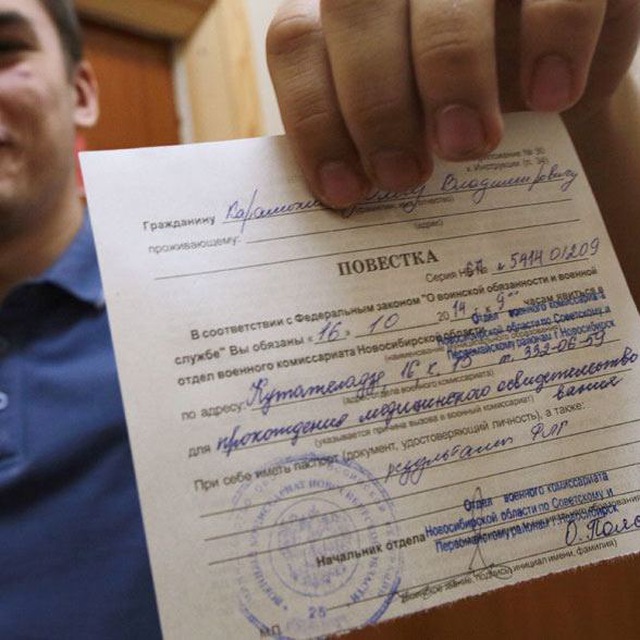 Приложение № 30
к Инструкции (п. 34)
Гражданину Владимировичу
проживающему:
(адрес)
ПОВЕСТКА
Серия НБ № 5414 01209
В соответствии с Федеральным законом "О воинской обязанности и военной
службе" Вы обязаны « 16 » 10 2014 г. к 9 часам явиться в
отдел военного комиссариата Новосибирской области
Отдел военного комиссариата
Новосибирской области по Советскому и
Первомайскому районам г. Новосибирск
по адресу: Кутателадзе, 16 к. 15 т. 332-06-59
(адрес отдела военного комиссариата)
для прохождения медицинского освидетельствования
(указывается причина вызова в военный комиссариат)
При себе иметь паспорт (документ, удостоверяющий личность), а также:
результаты ФЛГ
Отдел военного комиссариата
Новосибирской области по Советскому и
Начальник отдела
МП